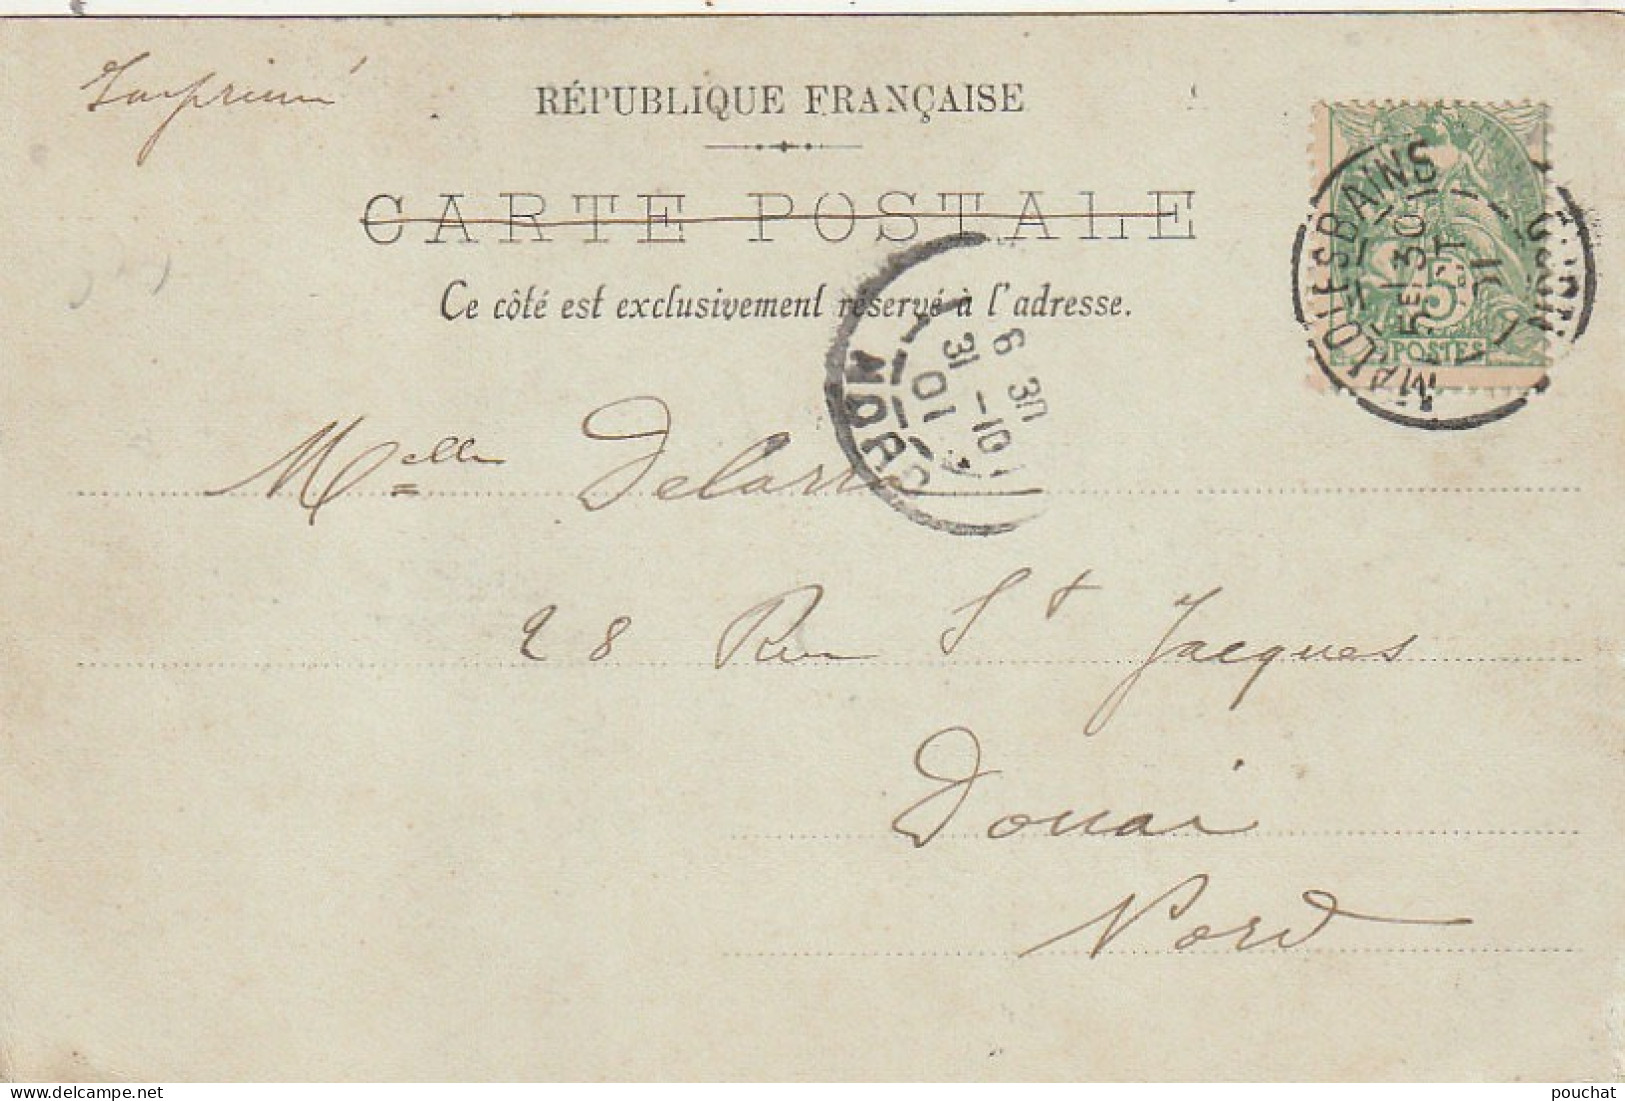 Imprimé
RÉPUBLIQUE FRANÇAISE
CARTE POSTALE
Ce côté est exclusivement réservé à l'adresse.
MALO LES BAINS
5E 30
OCT
01
5
POSTES
6 30
31 -10
01
NORD
Melle
28 Rue St Jacques
Douai
Nord
www.delcampe.net
pouchat